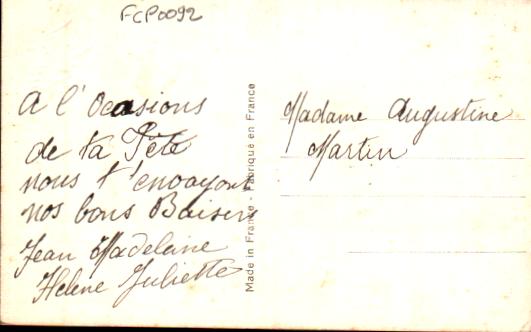 FCP0092
A l'Ocasions
de ta Fête
nous t'envoyont
nos bons Baisers
Jean Madeleine
Helene Juliette
Made in France - Fabriqué en France
Madame Augustine
Martin